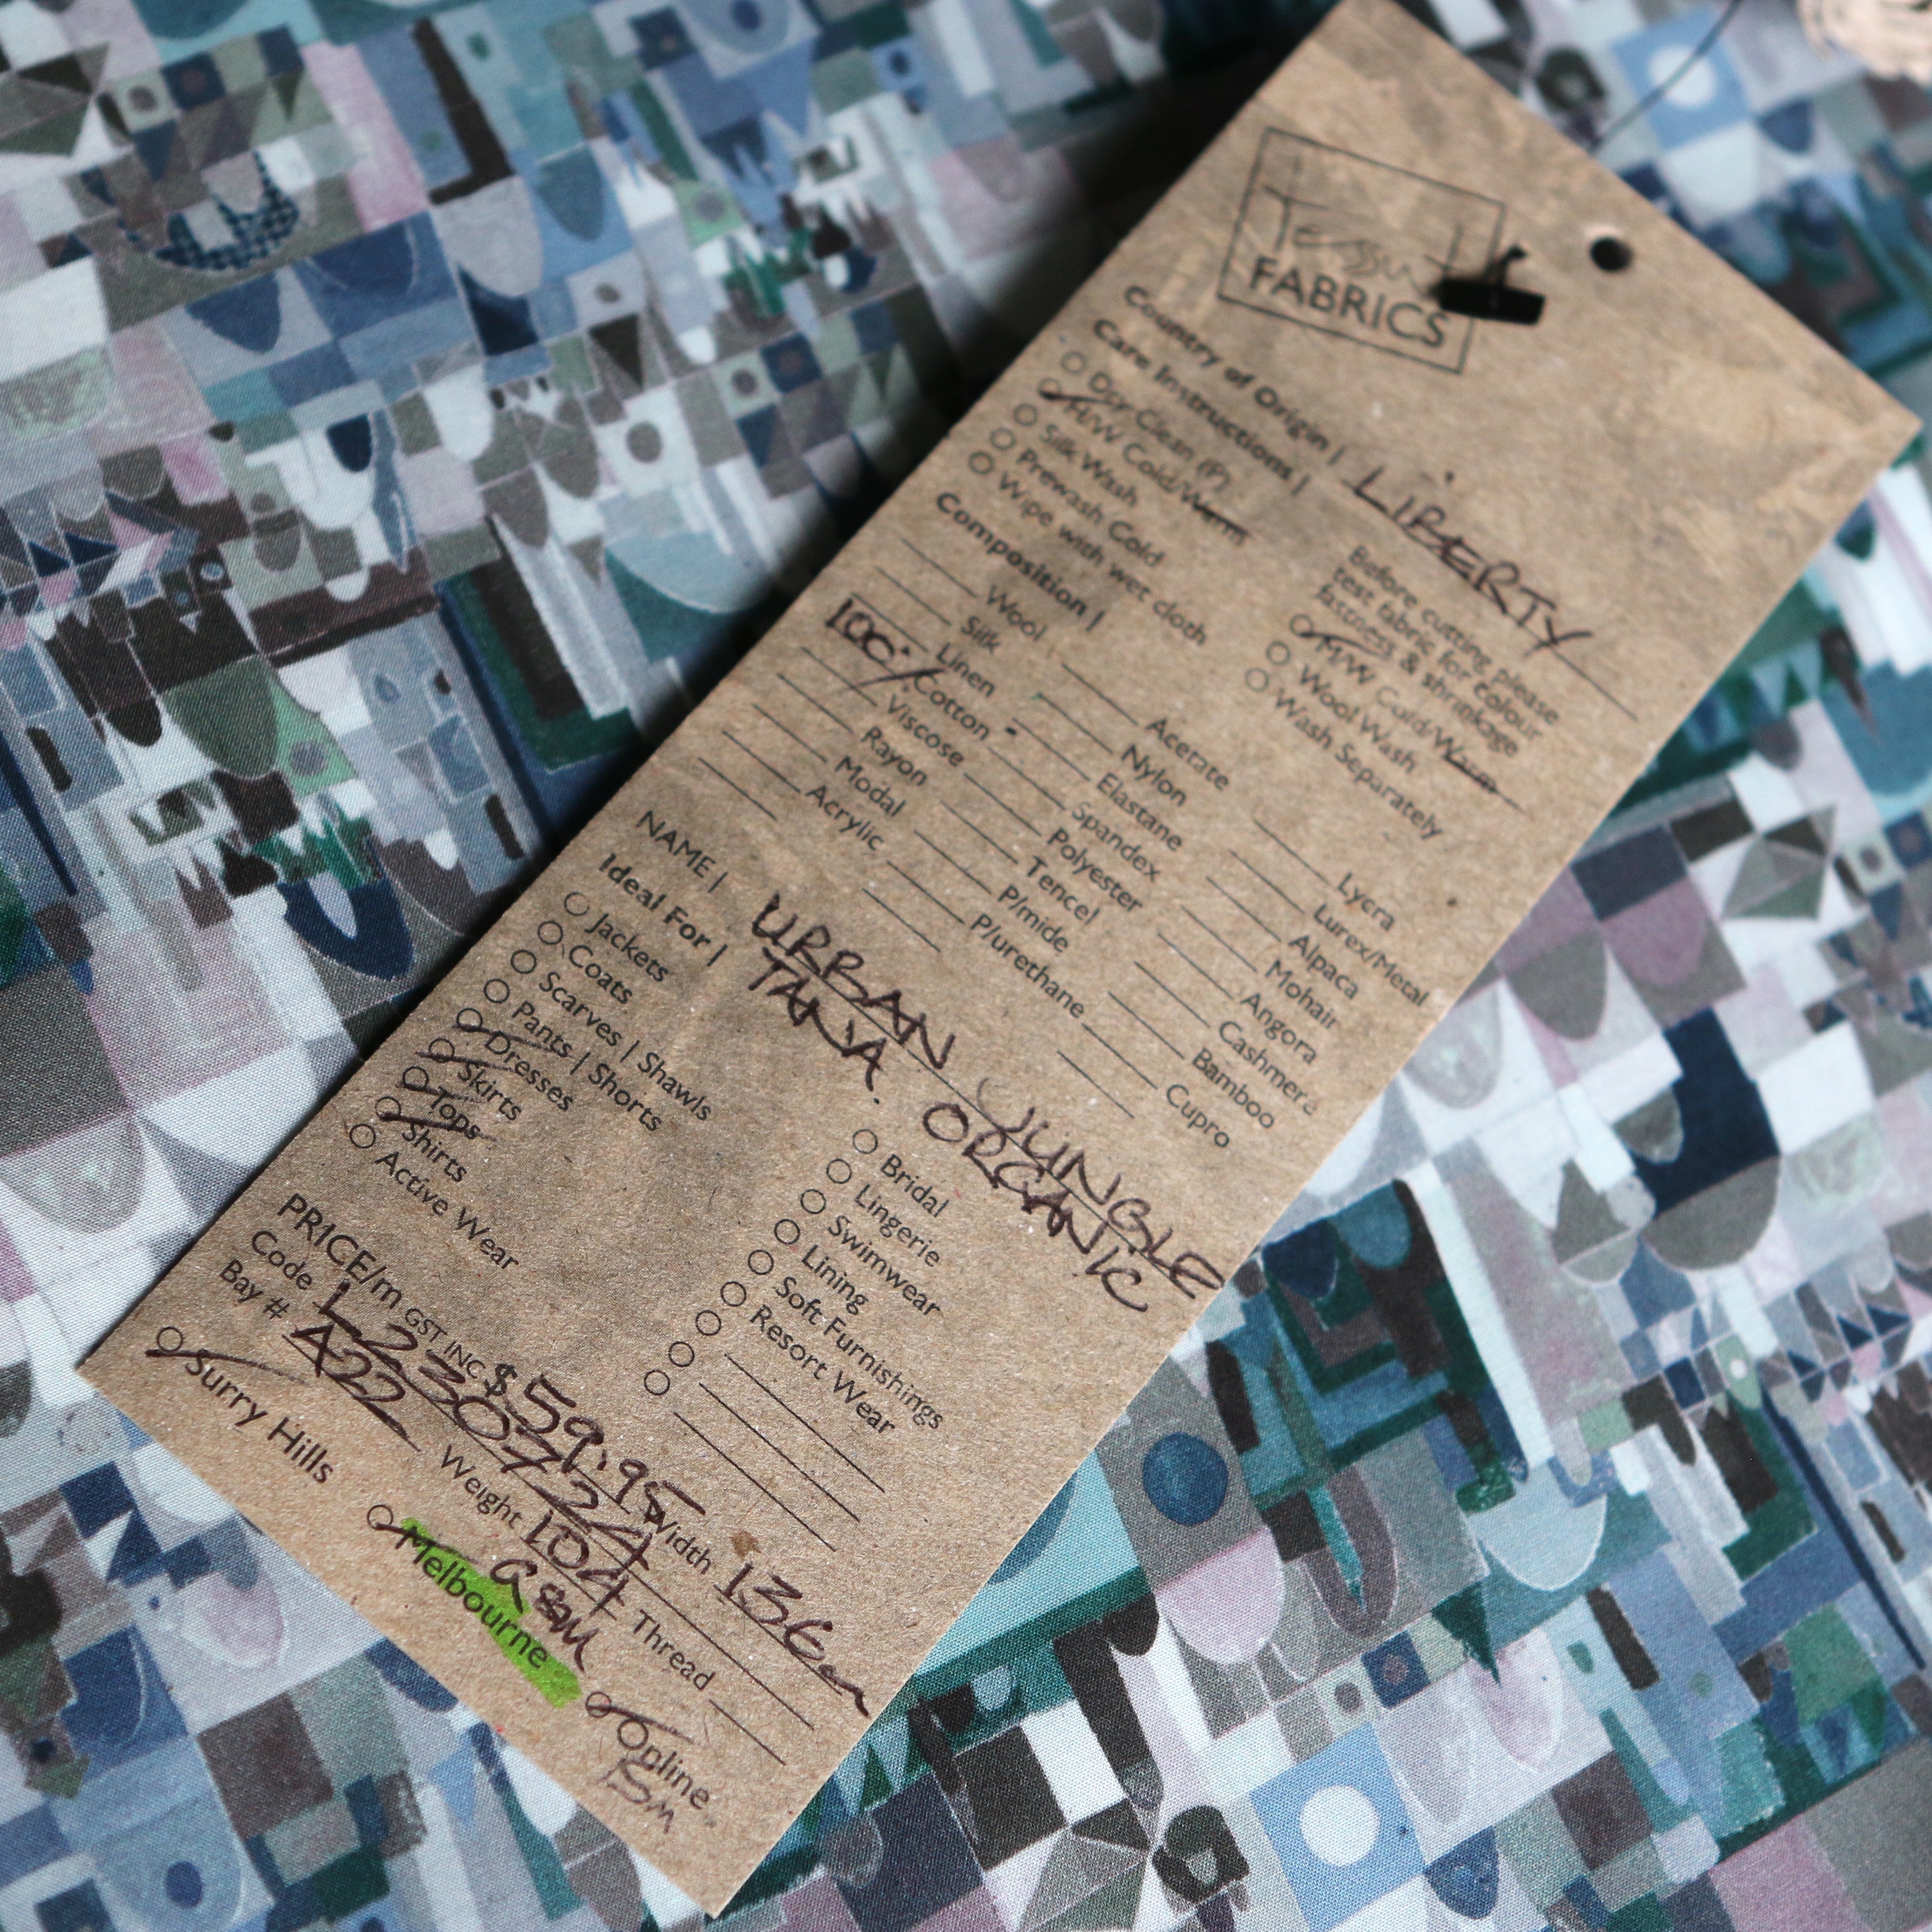 Tessuti
FABRICS
Country of Origin | LIBERTY
Care Instructions |
Dry Clean (P)
H/W Cold/Warm
Silk Wash
Prewash Cold
Wipe with wet cloth
Before cutting please
test fabric for colour
fastness & shrinkage
M/W Cold/Warm
Wool Wash
Wash Separately
Composition |
Wool
Silk
Linen
100% Cotton
Viscose
Rayon
Modal
Acrylic
Acetate
Nylon
Elastane
Spandex
Polyester
Tencel
P/mide
P/urethane
Lycra
Lurex/Metal
Alpaca
Mohair
Angora
Cashmere
Bamboo
Cupro
NAME | URBAN JUNGLE
TANA. ORGANIC
Ideal For |
Jackets
Coats
Scarves | Shawls
Pants | Shorts
Dresses
Skirts
Tops
Shirts
Active Wear
Bridal
Lingerie
Swimwear
Lining
Soft Furnishings
Resort Wear
PRICE/m GST INC $59.95
Code L230724 Width 136cm
Bay # A22 Weight 104 Thread
GSM
Surry Hills
Melbourne
Online